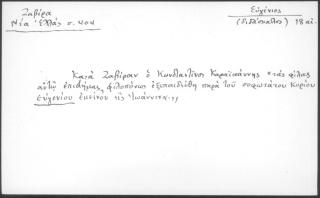 Ζαβίρα
Νέα Ἑλλὰς σ. 404
Εὐγένιος
(Διδάσκαλος) 18 αἰ.
Κατὰ Ζαβίραν ὁ Κωνσταντῖνος Καραϊωάννης "τὰς φίλας
αὐτῷ ἐπιστήμας φιλοπόνως ἐξεπαιδεύθη παρὰ τοῦ σοφωτάτου κυρίου
Εὐγενίου ἐκείνου εἰς Ἰωάννινα",,